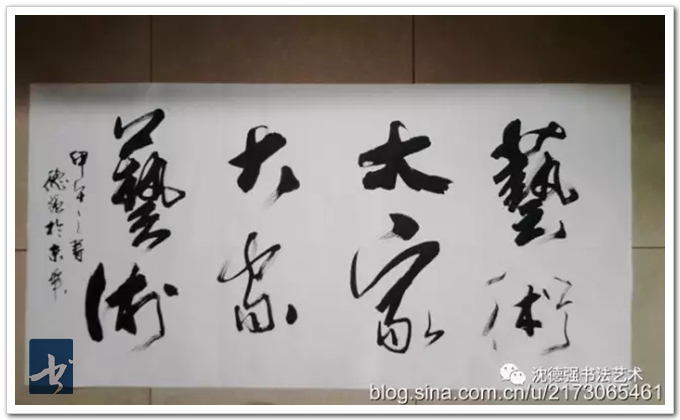 藝術
大家
大家
藝術
甲午之春
德强於京華
书
沈德强书法艺术
blog.sina.com.cn/u/2173065461